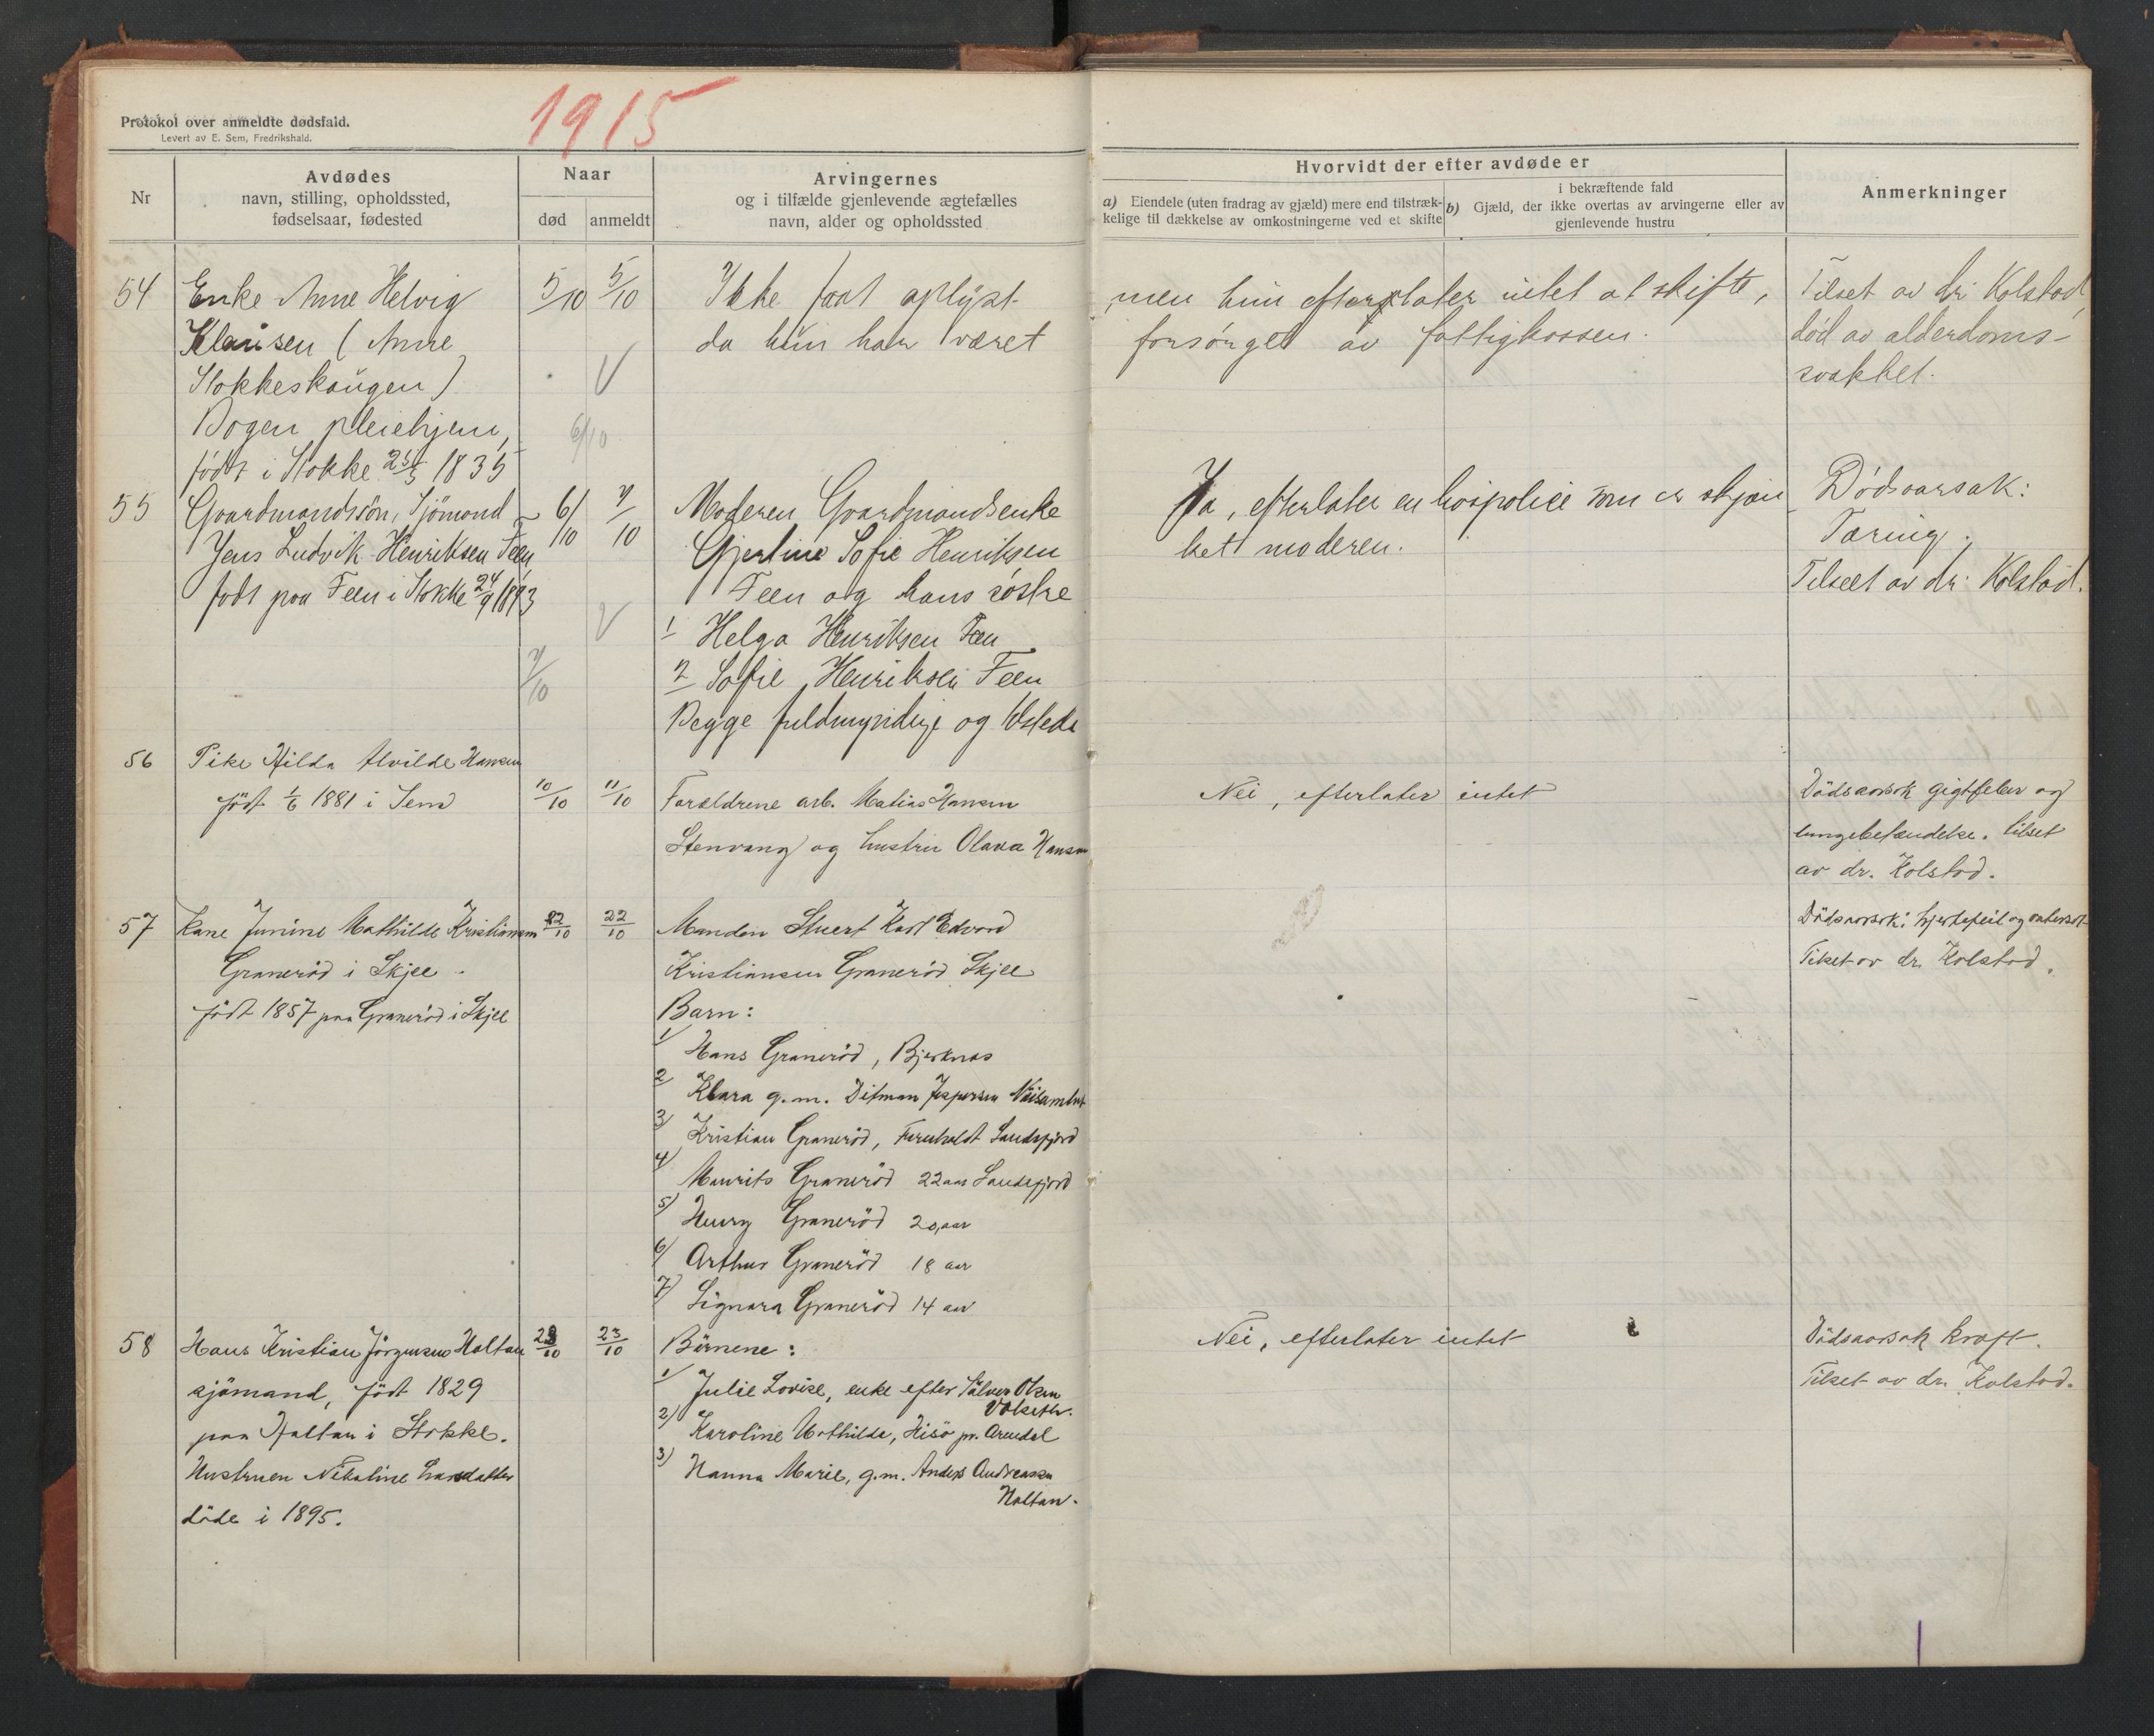 1915
Protokol over anmeldte dødsfald.
Levert av E. Sem, Fredrikshald.
Nr
Avdødes
navn, stilling, opholdssted,
fødselsaar, fødested
Naar
død
anmeldt
Arvingernes
og i tilfælde gjenlevende ægtefælles
navn, alder og opholdssted
Hvorvidt der efter avdøde er
a) Eiendele (uten fradrag av gjæld) mere end tilstræk-
kelige til dækkelse av omkostningerne ved et skifte
i bekræftende fald
b) Gjæld, der ikke overtas av arvingerne eller av
gjenlevende hustru
Anmerkninger
54
Enke Anne Helvig
Klausen (Anne
Stokkeskaugen)
Bogen pleiehjem,
født i Stokke 25/3 1835
5/10
5/10
6/10
Ikke faat oplyst
da hun har været
men hun efterlater intet at skifte,
forsørget av fattigkassen.
Tilset av dr Kolstad,
død av alderdoms-
svakhet.
55
Gaardmandssøn, Sjömand
Jens Ludvik Henriksen Feen,
født paa Feen i Stokke 24/9 1893
6/10
7/10
7/10
Moderen Gaardmandsenke
Gjertine Sofie Henriksen
Feen og hans søstre
1 Helga Henriksen Feen
2 Sofie Henriksen Feen
Begge fuldmyndige og tilstede
Ja, efterlater en livspolice som er skjæn
ket moderen.
Dödsaarsak:
Tæring.
Tilseet av dr. Kolstad.
56
Pike Hilda Alvilde Hansen
født 1/6 1881 i Sem
10/10
11/10
Forældrene arb. Matias Hansen
Stenvang og hustru Olava Hansen
Nei, efterlater intet
Dödsaarsak gigtfeber og
lungebetændelse. tilset
av dr. Kolstad.
57
Kone Junine Mathilde Kristiansen
Graneröd i Skjee
født 1857 paa Graneröd i Skjee
22/10
22/10
Manden Stuert Karl Edvard
Kristiansen Graneröd Skjee
Barn:
1/ Hans Graneröd, Bjerknæs
2 Klara g.m. Ditman Jespersen
3/ Kristian Graneröd, Furuholdt Sandefjord
4/ Maurits Graneröd 22 aar Sandefjord
5/ Henry Graneröd 20 aar
6/ Arthur Graneröd 18 aar
7/ Signara Graneröd 14 aar
Dödsaarsak: hjertefeil og vatersot
Tilset av dr. Kolstad.
58
Hans Kristian Jörgensen Holtan
sjömand, født 1829
paa Holtan i Stokke.
Hustruen Nikoline Larsdatter
döde i 1895.
23/10
23/10
Börnene:
1/ Julie Lovise, enke efter Sölver Olsen
2) Karoline Mathilde, Hisö pr. Arendal
3) Hanna Marie, g.m. Anders Andreasen
Holtan.
Nei, efterlater intet
Dödsaarsak kræft.
Tilset av dr. Kolstad.